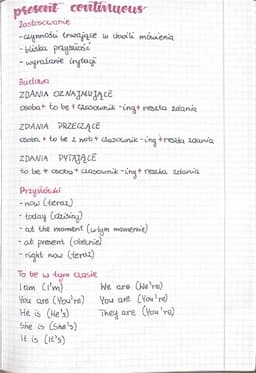 present continuous
Zastosowanie
- czynności trwające w chwili mówienia
- bliska przyszłość
- wyrażanie irytacji
Budowa
ZDANIA OZNAJMUJĄCE
osoba + to be + czasownik -ing + reszta zdania
ZDANIA PRZECZĄCE
osoba + to be z not + czasownik -ing + reszta zdania
ZDANIA PYTAJĄCE
to be + osoba + czasownik -ing + reszta zdania
Przysłówki
- now (teraz)
- today (dzisiaj)
- at the moment (w tym momencie)
- at present (obecnie)
- right now (teraz)
To be w tym czasie
I am (I'm) We are (We're)
You are (You're) You are (You're)
He is (He's) They are (They're)
She is (She's)
It is (It's)